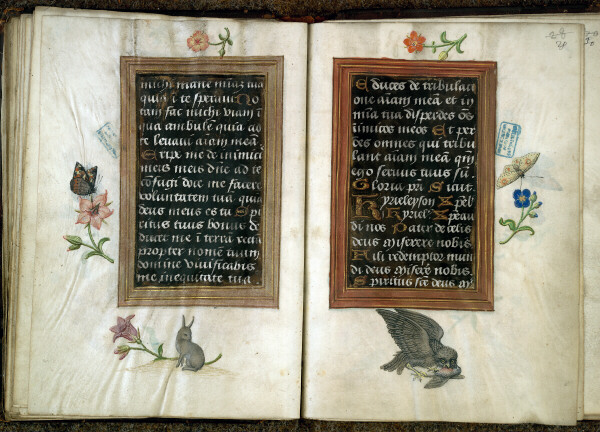 michi mane miam tua
quia i te speraui No
tam fac michi viam i
qua ambulē quia ad
te leuaui aiam meā
Eripe me de inimici
meis dñe ad te
cōfugi doce me facere
voluntatem tuā quia
deus meus es tu Spi
ritus tuus bonus de
ducet me i terrā rectā
propter nomē tuum
domine viuificabis
me inequitate tua
Educes de tribulati
one aiam meā et in
mia tua disperdes oēs
inimicos meos Et per
des omnes qui tribu
lant aiam meā qm̄
ego seruus tuus su.
Gloria pri Sicut.
Kyrieleyson Xpel
Kyriel Xpe au
di nos Pater de celis
deus miserere nobis
Fili redemptor mun
di deus miserē nobis.
Spiritus scē deus m.